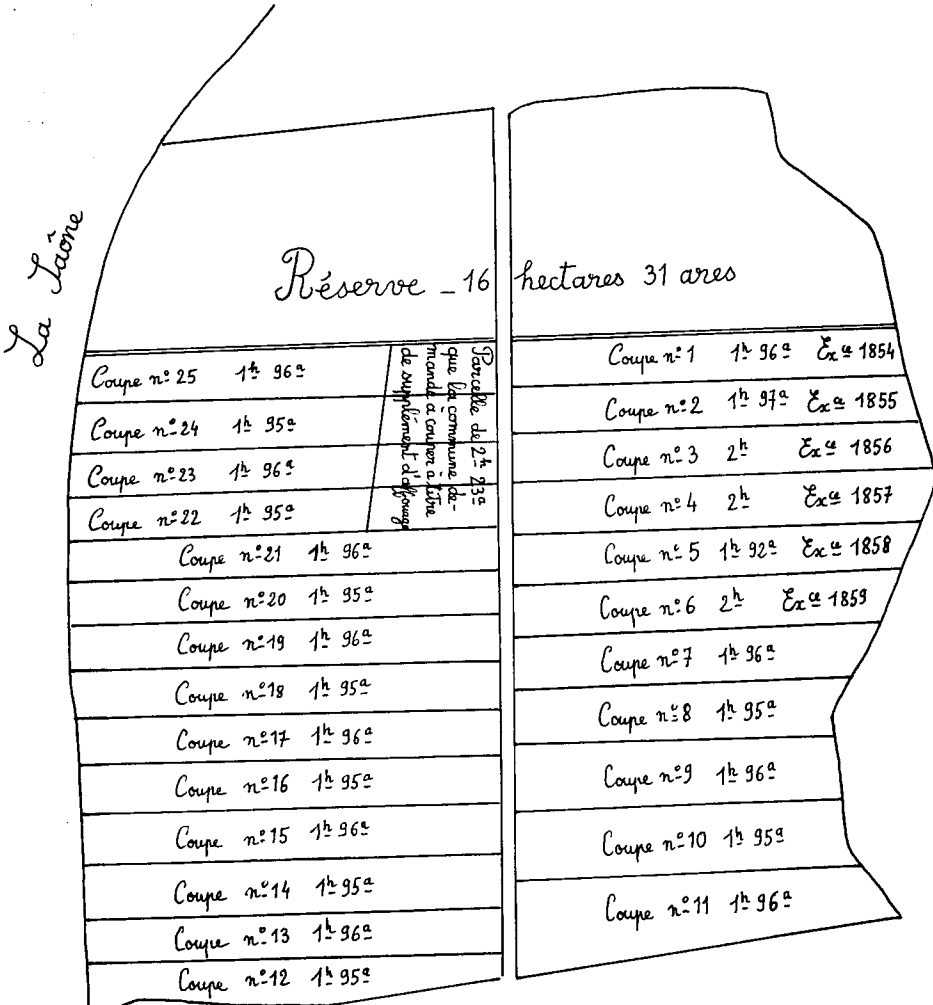 La Saône
Réserve _ 16 hectares 31 ares
Coupe nº 25 1ʰ 96ᵃ
Coupe nº 24 1ʰ 95ᵃ
Coupe nº 23 1ʰ 96ᵃ
Coupe nº 22 1ʰ 95ᵃ
Parcelle de 2ʰ 23ᵃ
que la commune de-
mande à couper à titre
de supplément d'affouage
Coupe nº 21 1ʰ 96ᵃ
Coupe nº 20 1ʰ 95ᵃ
Coupe nº 19 1ʰ 96ᵃ
Coupe nº 18 1ʰ 95ᵃ
Coupe nº 17 1ʰ 96ᵃ
Coupe nº 16 1ʰ 95ᵃ
Coupe nº 15 1ʰ 96ᵃ
Coupe nº 14 1ʰ 95ᵃ
Coupe nº 13 1ʰ 96ᵃ
Coupe nº 12 1ʰ 95ᵃ
Coupe nº 1 1ʰ 96ᵃ Exᶜᵉ 1854
Coupe nº 2 1ʰ 97ᵃ Exᶜᵉ 1855
Coupe nº 3 2ʰ Exᶜᵉ 1856
Coupe nº 4 2ʰ Exᶜᵉ 1857
Coupe nº 5 1ʰ 92ᵃ Exᶜᵉ 1858
Coupe nº 6 2ʰ Exᶜᵉ 1859
Coupe nº 7 1ʰ 96ᵃ
Coupe nº 8 1ʰ 95ᵃ
Coupe nº 9 1ʰ 96ᵃ
Coupe nº 10 1ʰ 95ᵃ
Coupe nº 11 1ʰ 96ᵃ